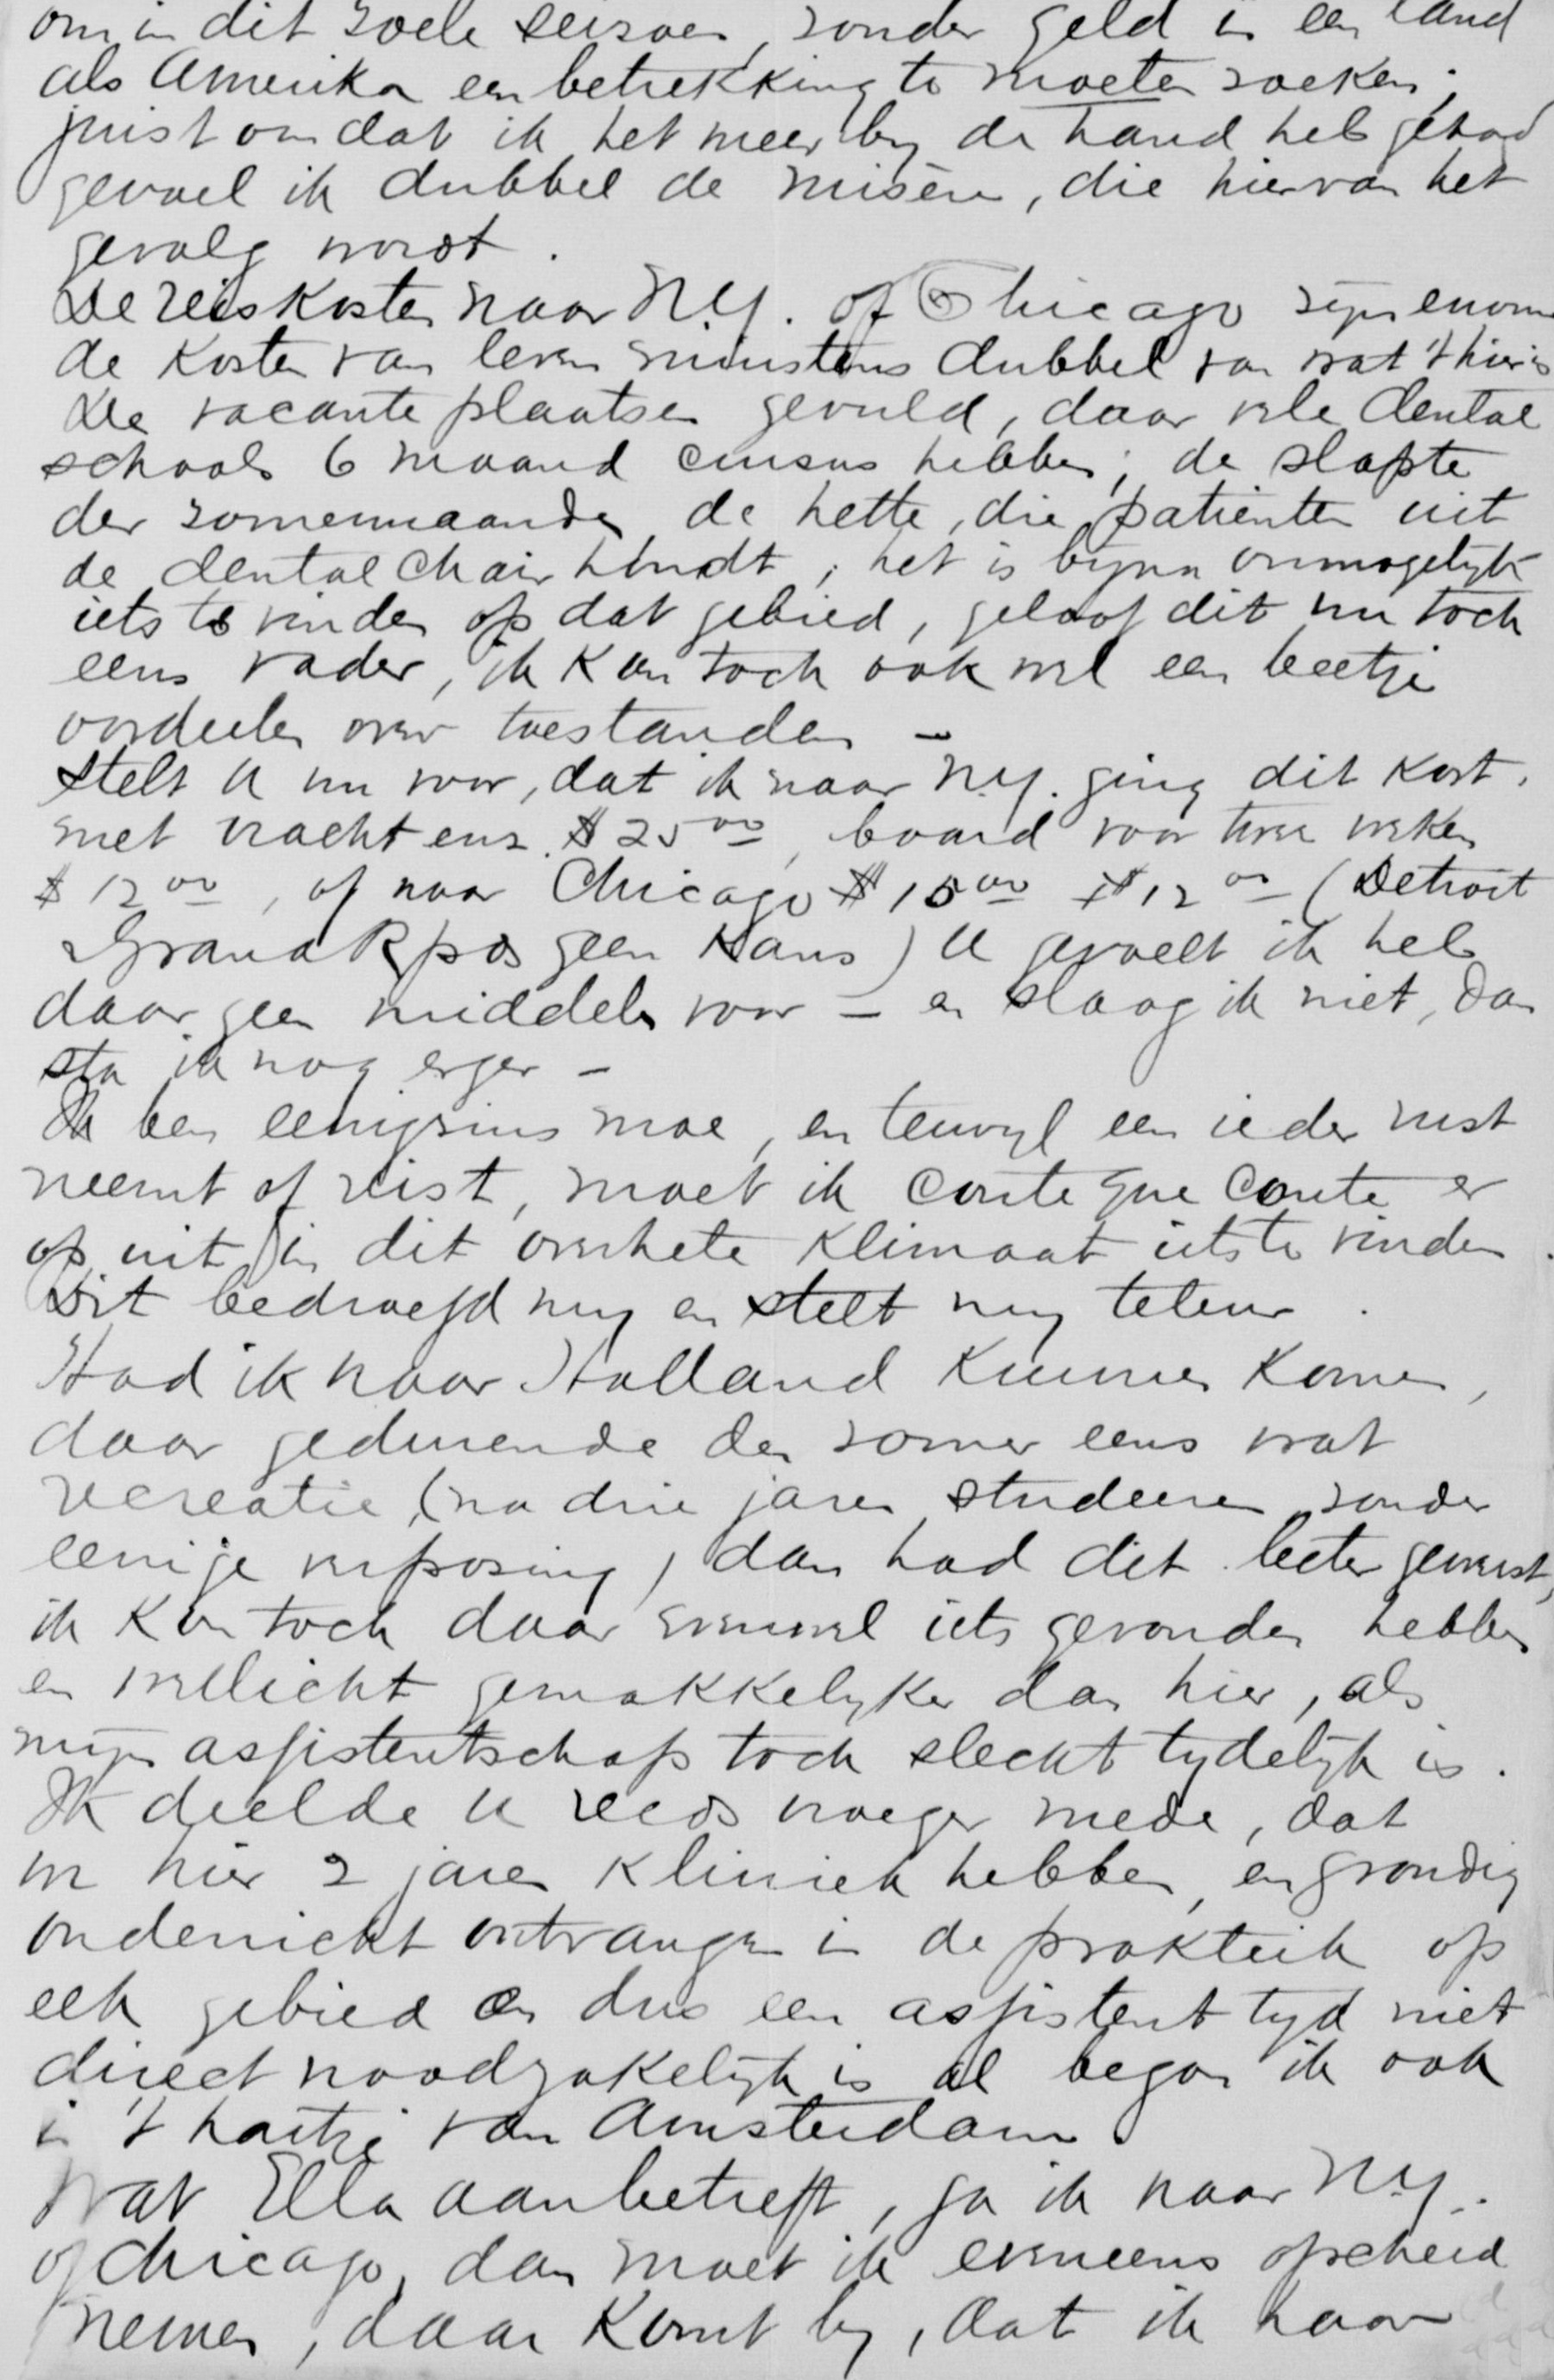 om in dit zoele seizoen, zonder geld in een land
als Amerika een betrekking te moeten zoeken;
juist omdat ik het meer by de hand heb gehad
gevoel ik dubbel de misère, die hiervan het
gevolg wordt.
De reiskosten naar N.Y. of Chicago zyn enorm
de kosten van leven minstens dubbel van wat 't hier is
De vacante plaatsen gevuld, daar vele dental
schools 6 maand cursus hebben; de slapte
der zomermaanden, de hette, die patienten uit
de dental chair houdt; het is byna onmogelyk
iets te vinden op dat gebied, geloof dit nu toch
eens vader, ik kan toch ook wel een beetje
oordeelen over toestanden –
Stelt U nu voor, dat ik naar N.Y. ging dit kost,
met vracht enz. $ 25 00, board voor twee weken
$ 12 00, of naar Chicago $ 15 00 + $ 12 00 (Detroit
Grand Rpds geen kans) U gevoelt ik heb
daar geen middelen voor – en slaag ik niet, dan
sta ik nog erger –
Ik ben eenigzins moe, en terwyl een ieder rust
neemt of reist, moet ik coute que coute er
op uit, in dit overhete klimaat iets te vinden.
Dit bedroefd my en stelt my teleur.
Had ik naar Holland kunnen komen,
daar gedurende den zomer eens wat
recreatie (na drie jaren studeeren zonder
eenige verpozing) dan had dit beter geweest,
ik kon toch daar evenwel iets gevonden hebben
en wellicht gemakkelyker dan hier, als
myn assistentschap toch slecht tydelyk is.
Ik deelde U reeds vroeger mede, dat
we hier 2 jaren kliniek hebben, en grondig
onderricht ontvangen in de prakteik op
elk gebied en dus een assistent tyd niet
direct noodzakelyk is al begon ik ook
in 't hartje van Amsterdam.
Wat Ella aanbetreft, ga ik naar N.Y.
of Chicago, dan moet ik eveneens afscheid
nemen, daar komt by, dat ik haar